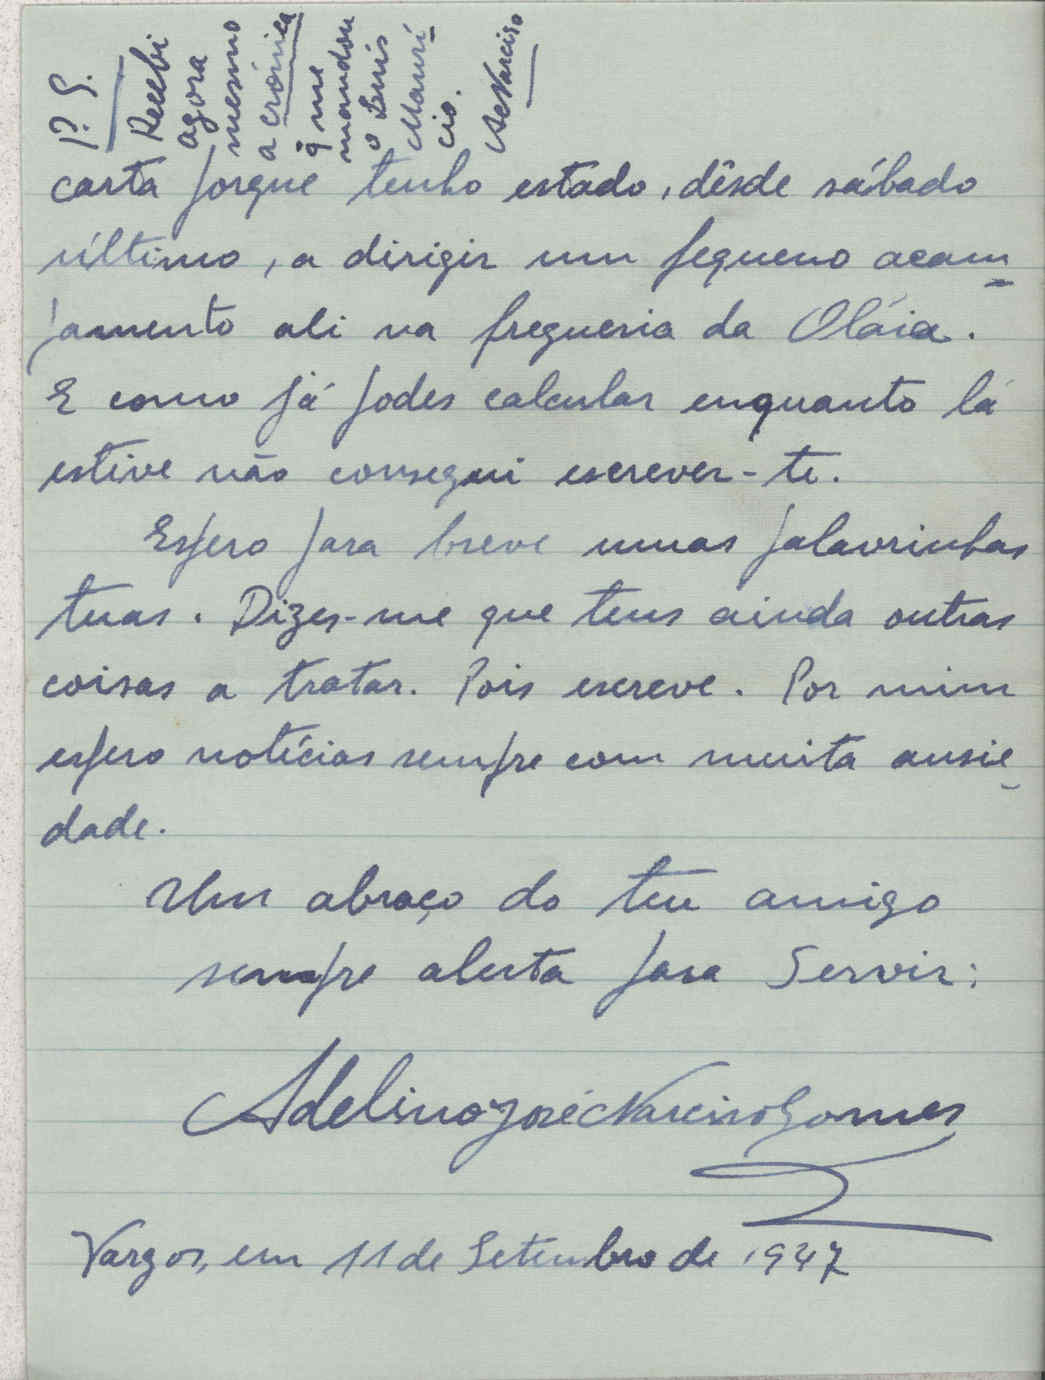 P. S.
Recebi
agora
mesmo
a crónica
q̇ me
mandou
o Luís
Maurí-
cio.
AdNarciso
carta porque tenho estado, dêsde sábado
último, a dirigir um pequeno acam-
pamento ali na freguesia da Oláia.
E como já podes calcular enquanto lá
estive não consegui escrever-te.
Espero para breve umas palavrinhas
tuas. Dizes-me que tens ainda outras
coisas a tratar. Pois escreve. Por mim
espero notícias sempre com muita ansie-
dade.
Um abraço do teu amigo
sempre alerta para Servir:
Adelino José Narciso Gomes
Vargos, em 11 de Setembro de 1947